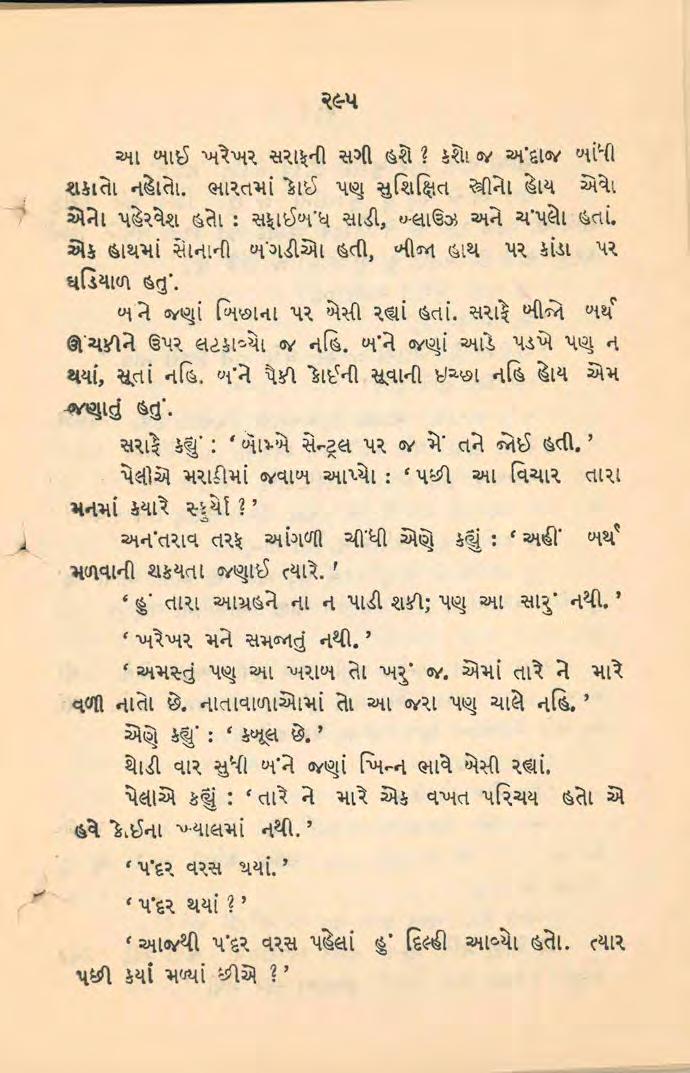 ૨૯૫
આ બાઈ ખરેખર સરાફની સગી હશે ? કશો જ અંદાજ બાંધી
શકાતો નહોતો. ભારતમાં કોઈ પણ સુશિક્ષિત સ્ત્રીનો હોય એવો
એનો પહેરવેશ હતો : સફાઈબંધ સાડી, બ્લાઉઝ અને ચંપલો હતાં.
એક હાથમાં સોનાની બંગડીઓ હતી, બીજા હાથ પર કાંડા પર
ઘડિયાળ હતું.
બંને જણાં બિછાના પર બેસી રહ્યાં હતાં. સરાફે બીજો બર્થ
ઊંચકીને ઉપર લટકાવ્યો જ નહિ. બંને જણાં આડે પડખે પણ ન
થયાં, સૂતાં નહિ. બંને પૈકી કોઈની સૂવાની ઇચ્છા નહિ હોય એમ
જણાતું હતું.
સરાફે કહ્યું : ‘ બૉમ્બે સેન્ટ્રલ પર જ મેં તને જોઈ હતી. ’
પેલીએ મરાઠીમાં જવાબ આપ્યો : ‘ પછી આ વિચાર તારા
મનમાં કયારે સ્ફુર્યો ? ’
અનંતરાવ તરફ આંગળી ચીંધી એણે કહ્યું : ‘ અહીં બર્થ
મળવાની શકયતા જણાઈ ત્યારે. ’
‘ હું તારા આગ્રહને ના ન પાડી શકી; પણ આ સારું નથી. ’
‘ ખરેખર મને સમજાતું નથી. ’
‘ અમસ્તું પણ આ ખરાબ તો ખરું જ. એમાં તારે ને મારે
વળી નાતો છે. નાતાવાળાઓમાં તો આ જરા પણ ચાલે નહિ. ’
એણે કહ્યું : ‘ કબૂલ છે. ’
થોડી વાર સુધી બંને જણાં ખિન્ન ભાવે બેસી રહ્યાં.
પેલાએ કહ્યું : ‘ તારે ને મારે એક વખત પરિચય હતો એ
હવે કોઈના ખ્યાલમાં નથી. ’
‘ પંદર વરસ થયાં. ’
‘ પંદર થયાં ? ’
‘ આજથી પંદર વરસ પહેલાં હું દિલ્હી આવ્યો હતો. ત્યાર
પછી કયાં મળ્યાં છીએ ? ’